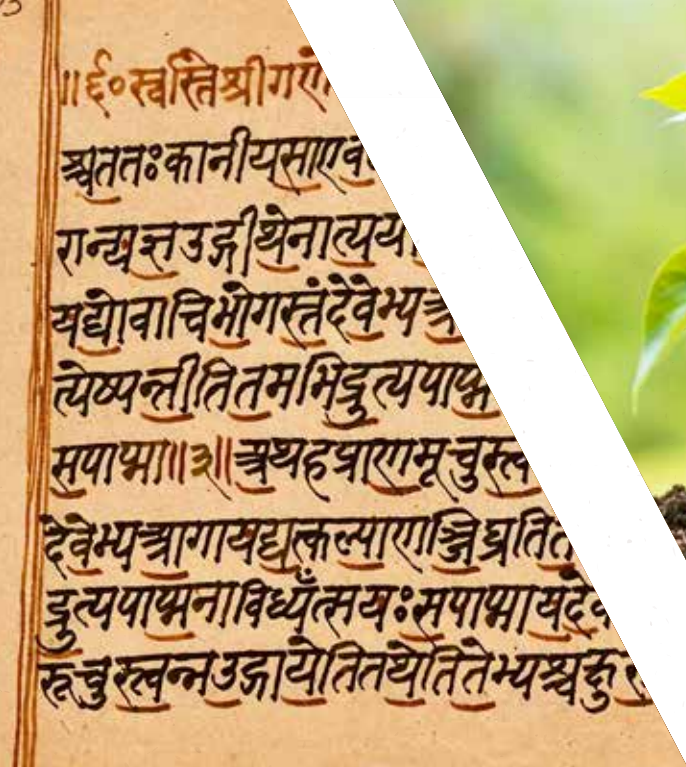 ॥६०स्वस्तिश्रीगणे
श्चततःकानीयसाएव
रान्यज्ञउद्गीथेनात्यया
यद्योवाचिभोगस्तंदेवेभ्यआ
त्येष्यन्तीतितमभिद्रुत्यपाप्म
सपाप्मा॥३॥अथहप्राणमूचुस्त्व
देवेभ्यआगायद्यत्कल्याणञ्जिघ्रतित
द्रुत्यपाप्मनाविध्यँत्सयःसपाप्मायदेव
रूचुस्त्वन्नउद्गायेतितथेतितेभ्यश्चक्षुरु